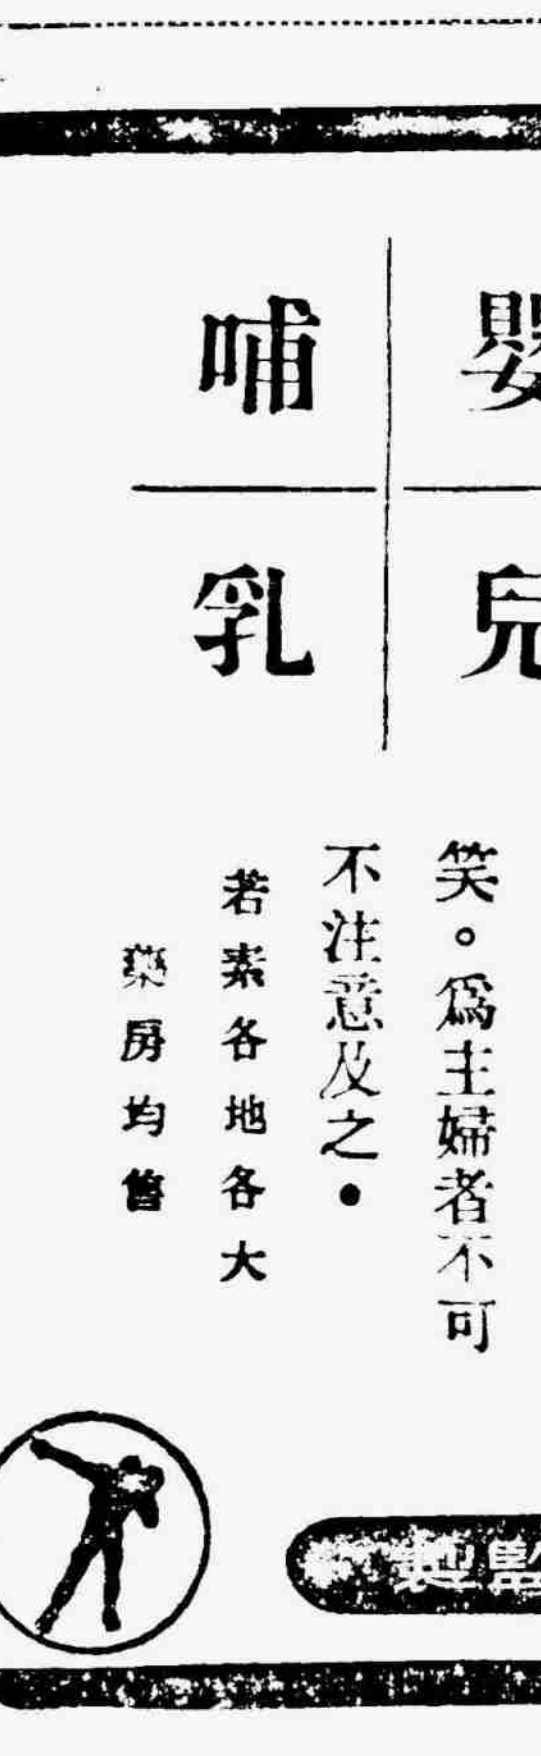 嬰兒
哺乳
笑。爲主婦者不可
不注意及之●
若素各地各大
藥房均售
監製